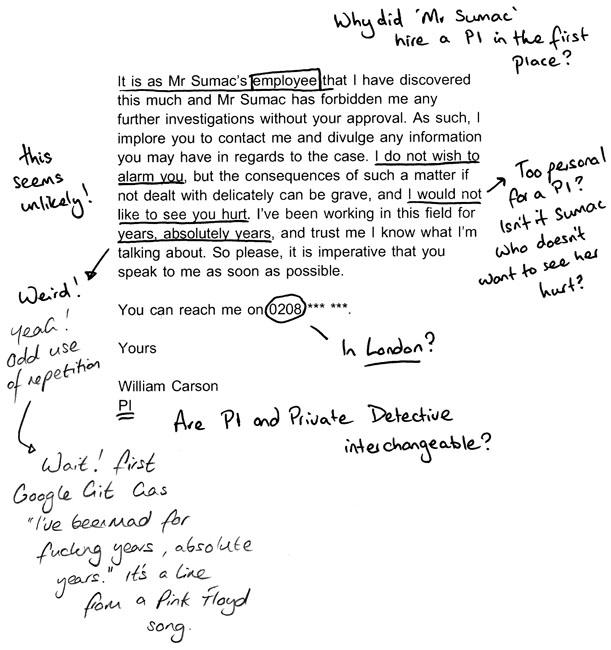 Why did 'Mr Sumac'
hire a PI in the first
place?
It is as Mr Sumac's employee that I have discovered
this much and Mr Sumac has forbidden me any
further investigations without your approval. As such, I
implore you to contact me and divulge any information
you may have in regards to the case. I do not wish to
alarm you, but the consequences of such a matter if
not dealt with delicately can be grave, and I would not
like to see you hurt. I've been working in this field for
years, absolutely years, and trust me I know what I'm
talking about. So please, it is imperative that you
speak to me as soon as possible.
this
seems
unlikely!
Too personal
for a PI?
Isn't it Sumac
who doesn't
want to see her
hurt?
Weird!
yeah!
odd use
of repetition
You can reach me on 0208 *** ***.
In London?
Yours
William Carson
PI
Are PI and Private Detective
interchangeable?
Wait! first
Google Git Gas
"I've been mad for
fucking years, absolute
years." It's a line
from a Pink Floyd
song.